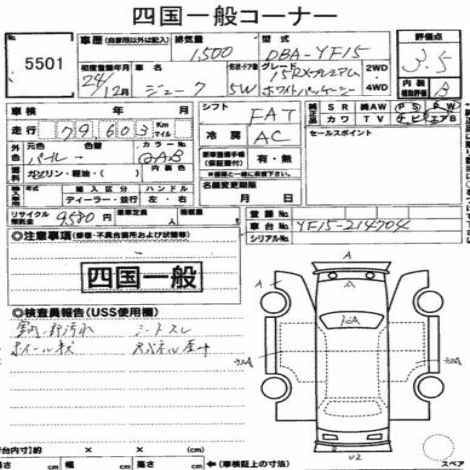 四国一般コーナー
5501
車歴 (自家用以外は記入) 排気量 1,500 型式 DBA-YF15 評価点 3.5
初度登録年月 24/12月 車名 ジューク 形状・ドア数 5W グレード 15RXプレミアム ホワイトパッケージ 2WD・4WD 内装 補助評価 B
車検 年 月 シフト FAT 純正品 SR 純AW PS PW
走行 79,603 Km マイル 冷房 AC カワ TV ナビ エアB
外色 元色 パール 色替 カラーNo. QAB セールスポイント
燃料 ガソリン・軽油・( ) 新車整備手帳(保証書付) 有・無
輸入車 年式 輸入区分 ハンドル 名義変更期限
ディーラー・並行 左・右 月 日
リサイクル預託金 9580円 乗車定員 人 積載量 登録No.
車台No. YF15-214704
シリアルNo.
◎注意事項 (修復・不具合箇所および状態等)
四国一般
◎検査員報告(USS使用欄)
シートスレ
A
A
A
U2
スペア
(cm)
高さ cm 幅 cm 高さ cm ←(車検証上の寸法)